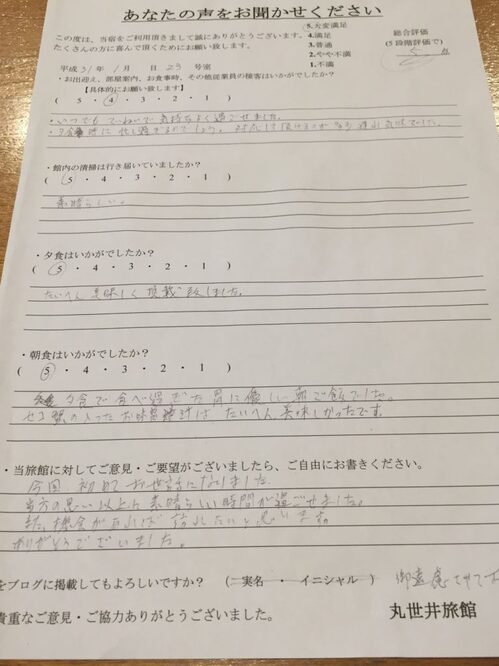 あなたの声をお聞かせください
この度は、当宿をご利用頂きまして誠にありがとうございます。
たくさんの方に喜んで頂くためにお願い致します。
5.大変満足
4.満足
3.普通
2.やや不満
1.不満
総合評価
(5段階評価で)
5
平成 31 年 1 月 日 23 号室
・お出迎え、部屋案内、お食事時、その他従業員の接客はいかがでしたか?
【具体的にお願い致します】
( 5 ・ 4 ・ 3 ・ 2 ・ 1 )
・いつでもていねいで気持ちよく過ごせました。
・夕食時に忙し過ぎるせいでしょう、対応して頂けるのが
・館内の清掃は行き届いていましたか?
( 5 ・ 4 ・ 3 ・ 2 ・ 1 )
素晴らしい。
・夕食はいかがでしたか?
( 5 ・ 4 ・ 3 ・ 2 ・ 1 )
たいへん美味しく頂戴致しました。
・朝食はいかがでしたか?
( 5 ・ 4 ・ 3 ・ 2 ・ 1 )
夕食で食べ過ぎた胃に優しい朝ご飯でした。
の入ったお味噌汁は たいへん美味しかったです。
・当旅館に対してご意見・ご要望がございましたら、ご自由にお書きください。
今回 初めてお世話になりました。
当方の思い以上に素晴らしい時間が過ごせました。
また、機会が有れば 訪れたいと思います。
ありがとうございました。
をブログに掲載してもよろしいですか? ( 実名 ・ イニシャル ) 御遠慮させてお
貴重なご意見・ご協力ありがとうございました。
丸世井旅館